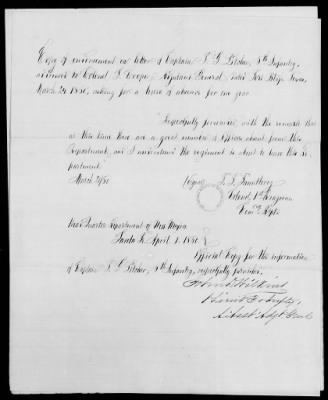 Copy of endorsement on letter of Captain T. G. Pitcher, 8th Infantry,
addressed to Colonel S. Cooper, Adjutant General, dated Fort Bliss, Texas,
March 24 1860, asking for a leave of absence for one year.
"Respectfully forwarded, with the remark that
at this time there are a great number of Officers absent from this
Department, and I understand the regiment is about to leave this De-
partment."
March 31/60 (Signed) T. T. Fauntleroy
Colonel 1st Dragoons
Com'g Dept.
Head Quarters Department of New Mexico
Santa Fe, April 1. 1860
Official Copy for the information
of Captain T. G. Pitcher, 8th Infantry, respectfully furnished.
John D Wilkins
1st Lieut 3d Infty
A. Asst Adjt Genl